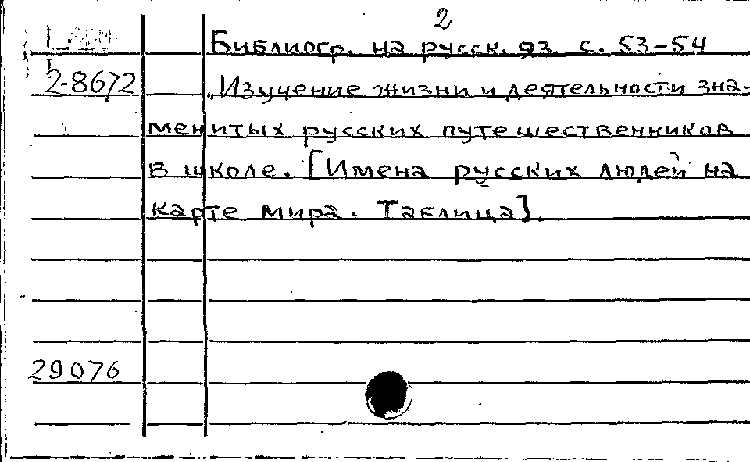 2
Библиогр. на русск. яз. с. 53-54
2-8672 „Изучение жизни и деятельности зна-
менитых русских путешественников
в школе. [Имена русских людей на
карте мира. Таблица].
29076